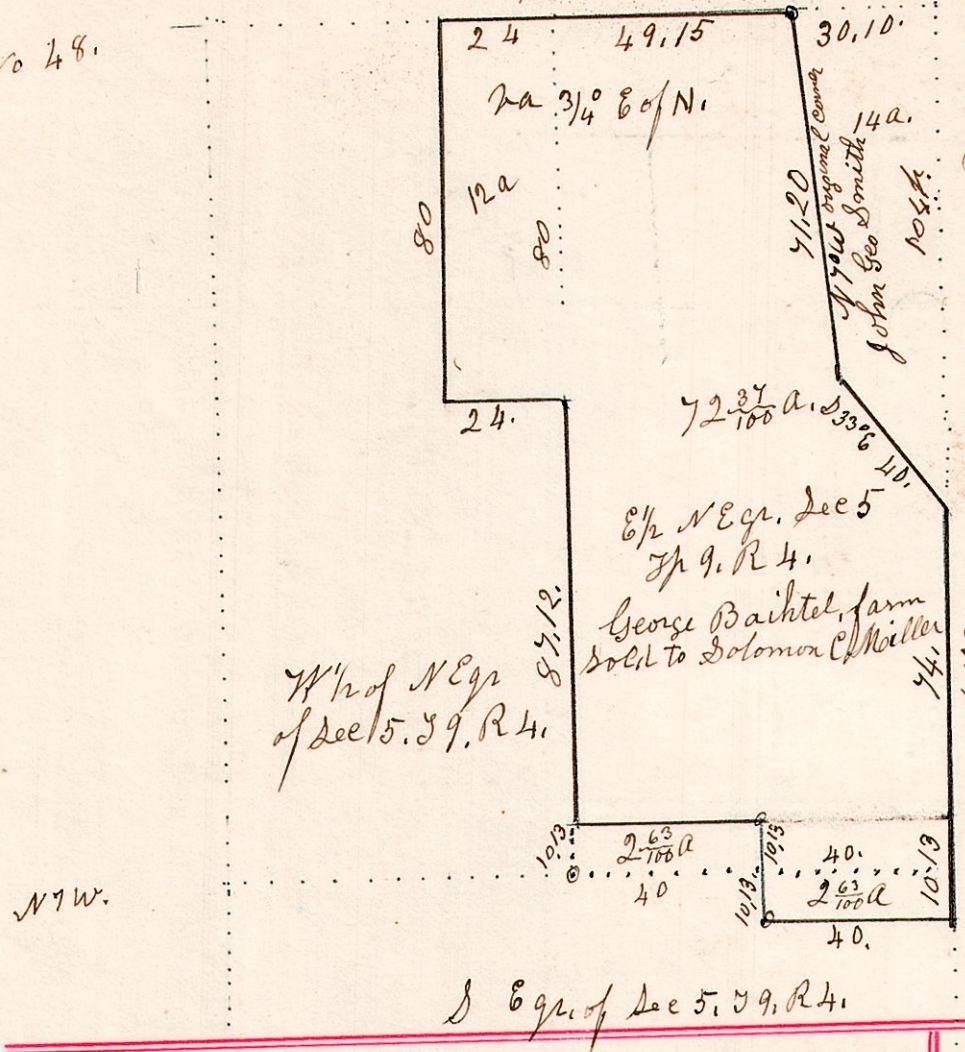 No 48.
24 49,15 30,10.
va 3/4° E of N.
14 a.
12 a
80
80
71,20
N 7° W original corner
John Geo Smith
24.
72 37/100 A.
S 33° E
40.
E ½ N E qr. Sec 5
Tp 9. R 4.
George Baihtel, farm
sold to Solomon C. Miller
87,12.
74.
W ½ of N E qr
of Sec 5. T 9. R 4.
10,13
2 63/100 A
10,13
40.
10.13
40
10,13.
2 63/100 A
40.
N 7 W.
S E qr. of Sec 5. T 9. R 4.